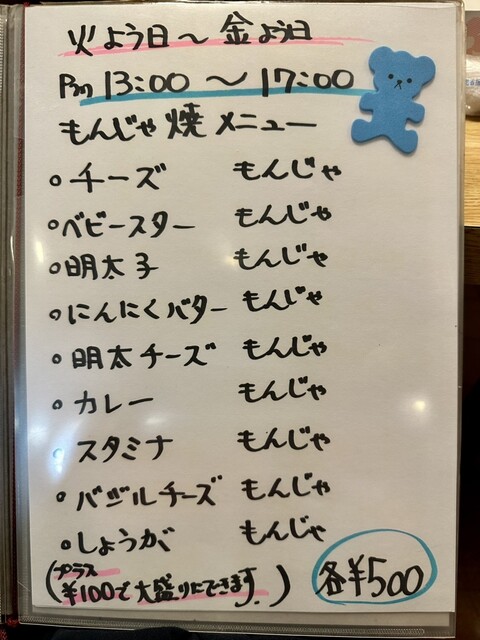 火よう日～金よう日
Pm 13:00 ～ 17:00
もんじゃ焼メニュー
。チーズ もんじゃ
。ベビースター もんじゃ
。明太子 もんじゃ
。にんにくバター もんじゃ
。明太チーズ もんじゃ
。カレー もんじゃ
。スタミナ もんじゃ
。バジルチーズ もんじゃ
。しょうが もんじゃ
プラス
(¥100で大盛りにできます。)
各¥500